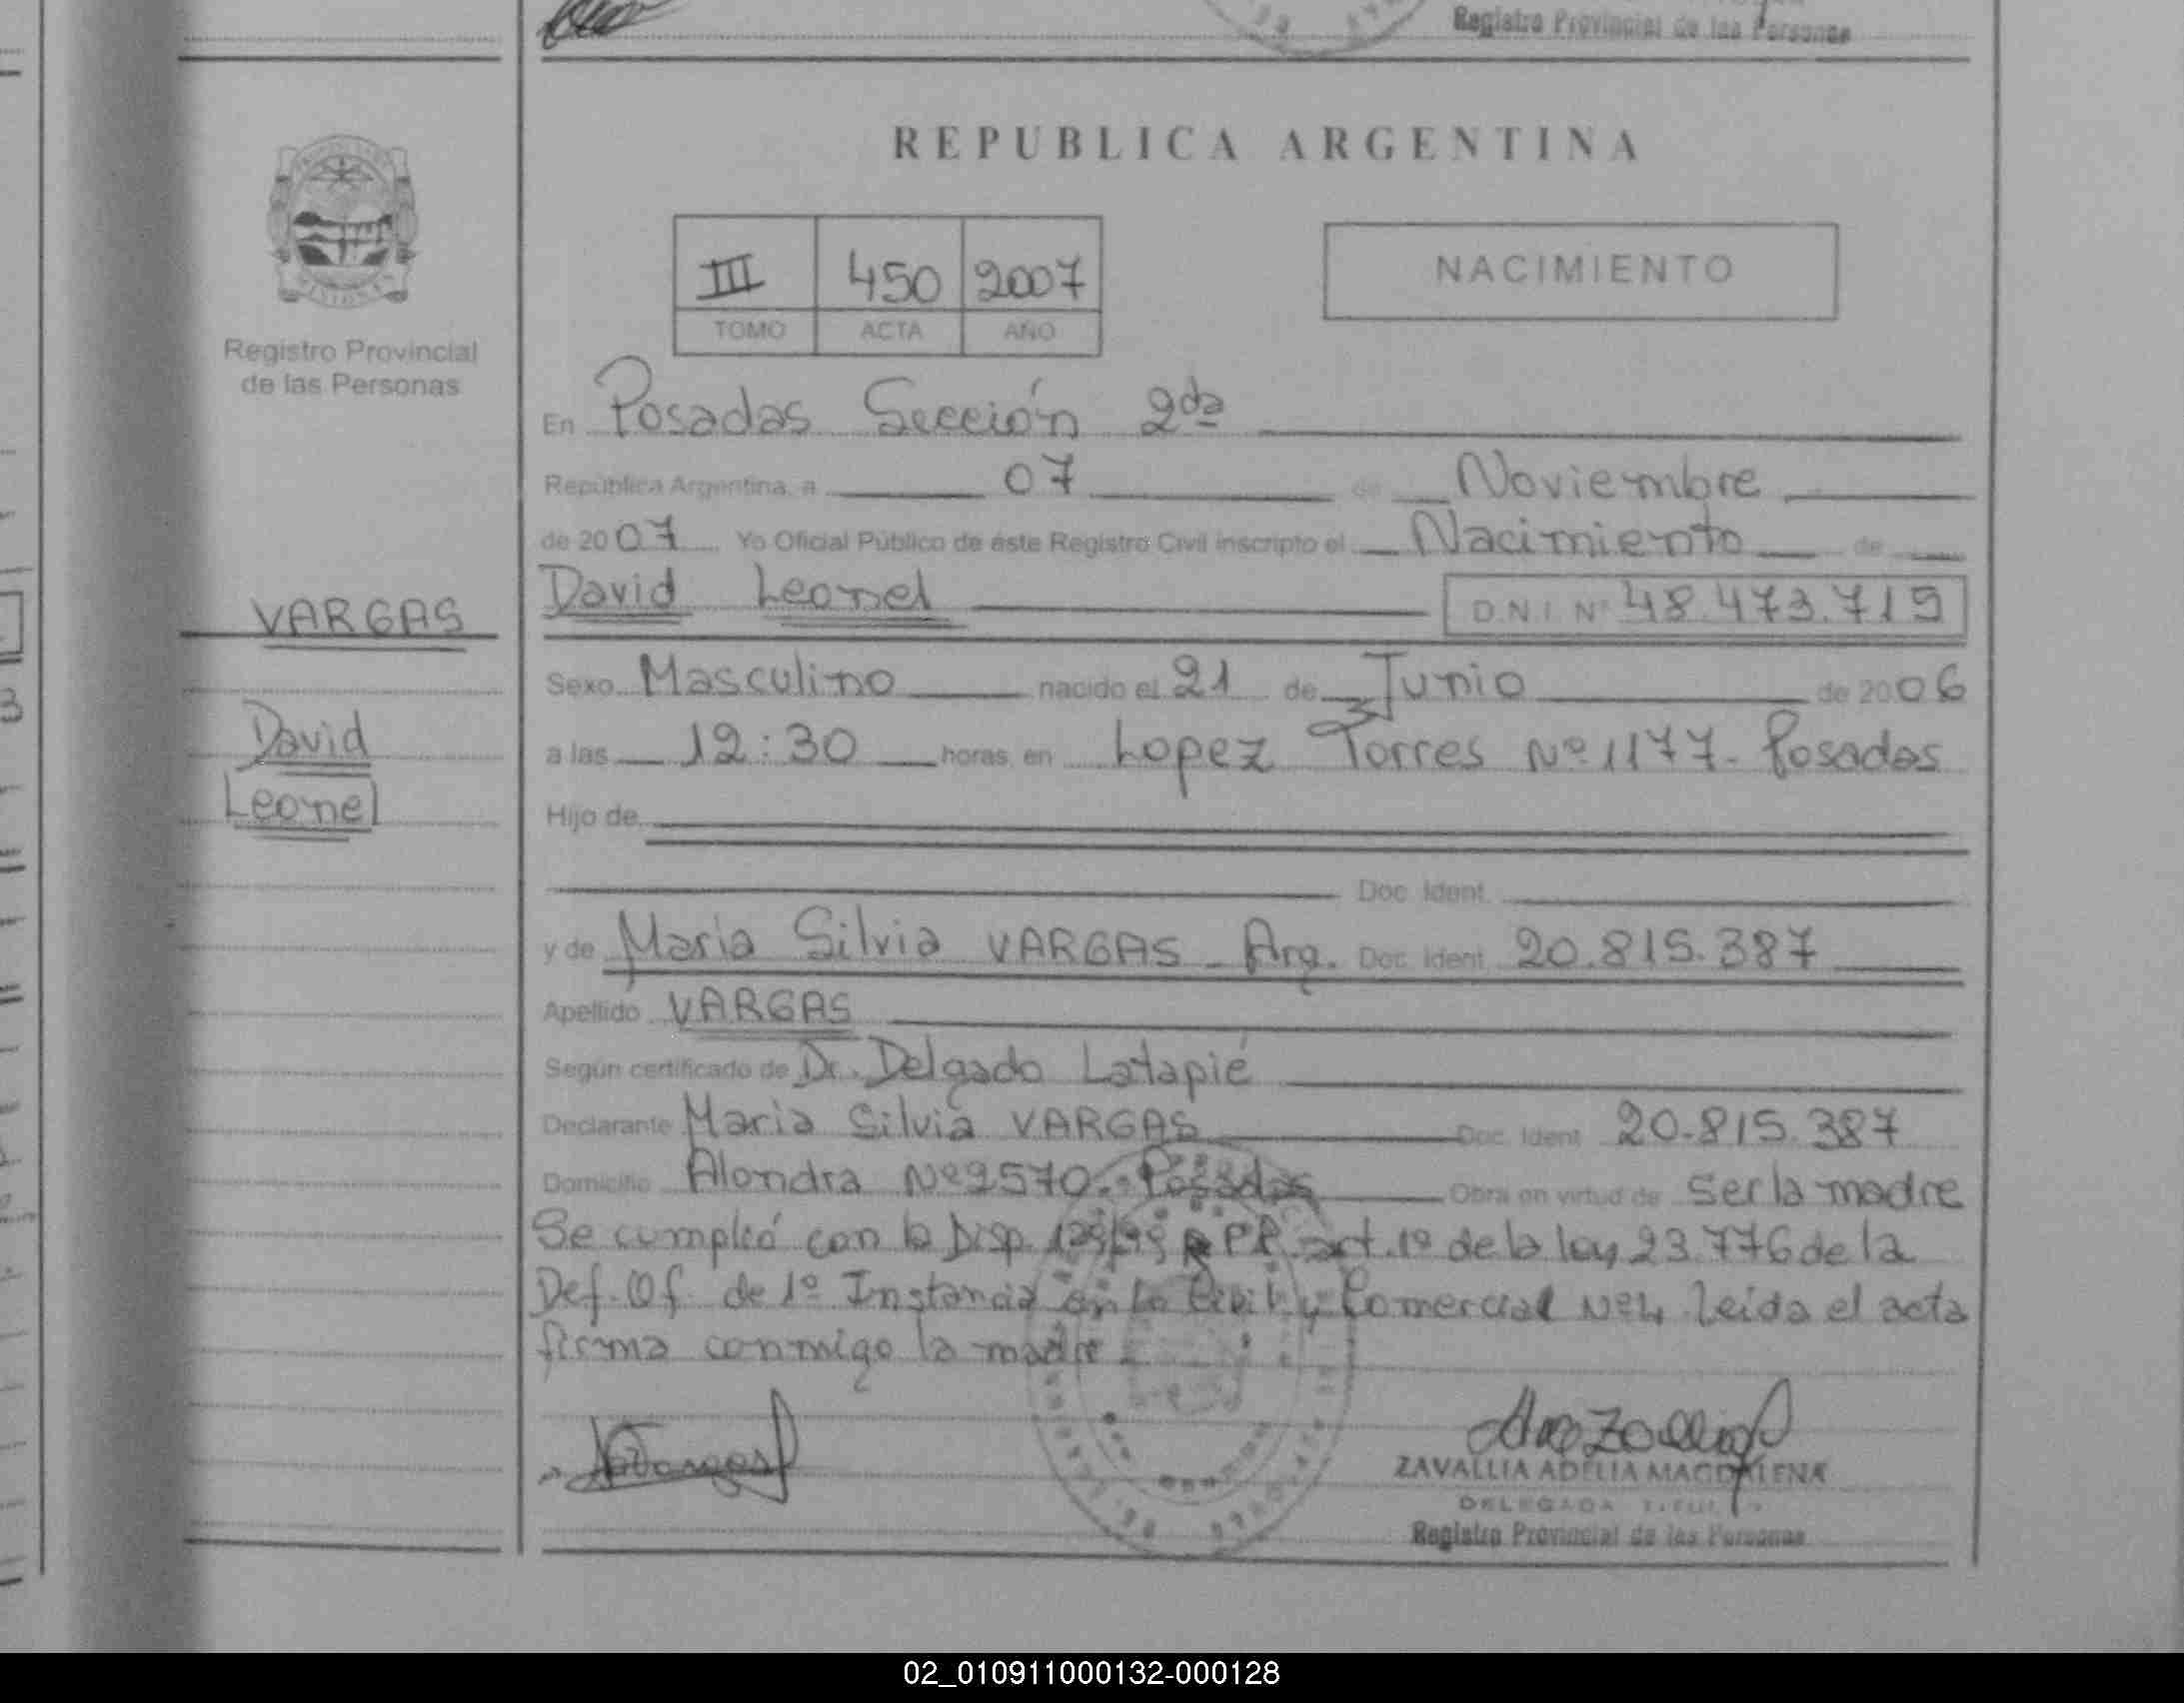 Registro Provincial de las Personas
REPUBLICA ARGENTINA
III 450 2007
TOMO ACTA AÑO
NACIMIENTO
Registro Provincial
de las Personas
VARGAS
David
Leonel
En Posadas Sección 2da
República Argentina, a 07 de Noviembre
de 2007 Yo Oficial Público de éste Registro Civil inscripto el Nacimiento de
David Leonel D.N.I. Nº 48.473.719
Sexo Masculino nacido el 21 de Junio de 2006
a las 12:30 horas, en Lopez Torres Nº 1177- Posadas
Hijo de
Doc. Ident.
y de Maria Silvia VARGAS - Arg. Doc. Ident. 20.815.387
Apellido VARGAS
Según certificado de Dr. Delgado Latapié
Declarante Maria Silvia VARGAS Doc. Ident. 20.815.387
Domicilio Alondra Nº 2570.- Posadas Obra en virtud de ser la madre
Se cumplió con la Disp. 129/99 art. 1º de la ley 23.776 de la
Def. Of. de 1º Instancia en lo Civil y Comercial Nº4 Leida el acta
firma conmigo la madre
ZAVALLIA ADELIA MAGDALENA
DELEGADA TITULAR
Registro Provincial de las Personas
02_010911000132-000128